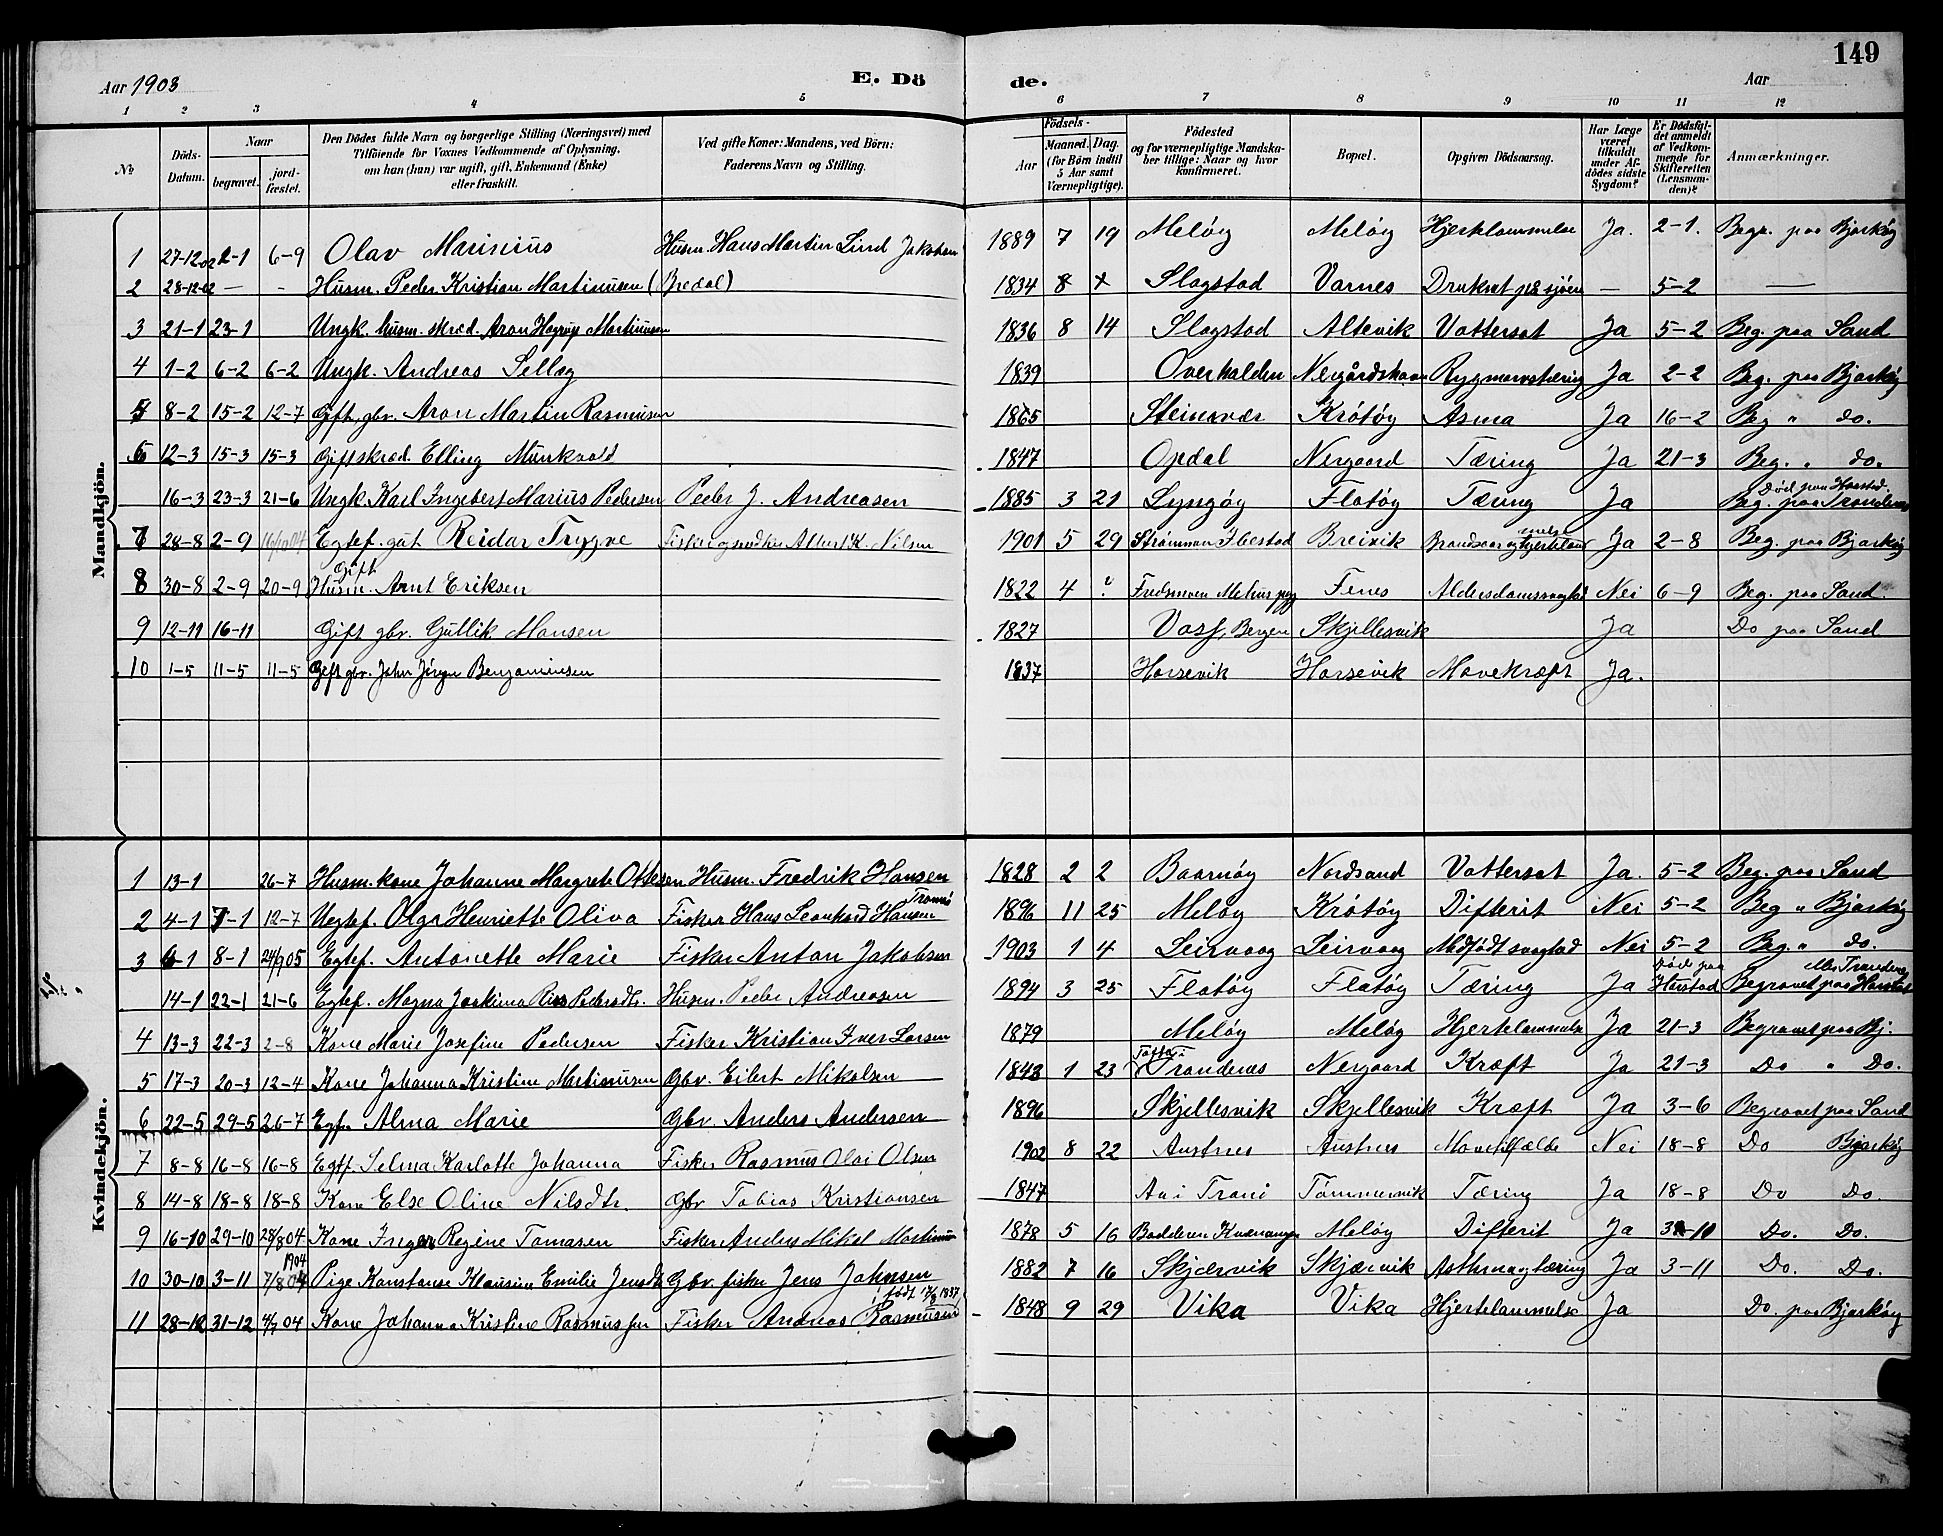 149
Aar 1903 E. Dö de. Aar
1 2 3 4 5 6 7 8 9 10 11 12
№
Döds-Datum.
Naar
begravet.
jord-fæstet.
Den Dödes fulde Navn og borgerlige Stilling (Næringsvei) med Tilföiende for Voxnes Vedkommende af Oplysning, om han (hun) var ugift, gift, Enkemand (Enke) eller fraskilt.
Ved gifte Koner: Mandens, ved Börn: Faderens Navn og Stilling.
Födsels-
Aar
Maaned. Dag. (for Börn indtil 5 Aar samt Værnepligtige).
Födested og for værnepligtige Mandskaber tillige: Naar og hvor konfirmeret.
Bopæl.
Opgiven Dödsaarsag.
Har Læge været tilkaldt under Afdödes sidste Sygdom?
Er Dödsfaldet anmeldt af Vedkommende for Skifteretten (Lensmanden)?
Anmærkninger.
Mandkjön.
1 27-12 02 2-1 6-9 Olav Marinius Husm. Hans Martin Lind Jakobsen 1889 7 19 Meløy Meløy Hjertelammelse Ja. 2-1. Begr. paa Bjarkøy
2 28-12-02 — - Husm. Peder Kristian Martinusen (Opedal) 1834 8 + Slagstad Varnes Druknet på sjøen — 5-2 —
3 21-1 23-1 Ungk. husm. skræd. Aron Martinusen 1836 8 14 Slagstad Altevik Vattersot Ja 5-2 Beg. paa Sand
4 1-2 6-2 6-2 Ungk. Andreas Selleg 1839 Overhalden Nergårdshavn Rygmarvstæring Ja 2-2 Beg. paa Bjarkøy
5 8-2 15-2 12-7 Gift, gbr. Aron Martin Rasmusen 1865 Steinsvær Krøtøy Asma Ja 16-2 Beg " do.
6 12-3 15-3 15-3 Gift skræd. Elling Munkvold 1847 Opdal Nergaard Tæring Ja 21-3 Beg. " do.
16-3 23-3 21-6 Ungk. Karl Ingebert Marius Pedersen Peder J. Andreasen 1885 3 21 Lyngøy Flatøy Tæring Ja Død paa Harstad. Beg. paa Trondenes
7 28-8 2-9 16/10 04 Egtef. gut Reidar Trygve Fisker og snedker Albert K. Nilsen 1901 5 29 Strømmen Ibestad Breivik Brandsaar og hjertelammelse Ja 2-8 Beg. paa Bjarkøy
8 30-8 2-9 20-9 Gift Husm. Arnt Eriksen 1822 4 ? Melhus pgj Fenes Alderdomssvaghed Nei 6-9 Beg. paa Sand.
9 12-11 16-11 Gift gbr. Gullik Monsen 1827 Voss, Bergen Skjellesvik Ja Do paa Sand
10 1-5 11-5 11-5 Gift gbr. John Jörgen Benjaminsen 1837 Horsevik Horsevik Mavekræft Ja.
Kvindekjön.
1 13-1 26-7 Husm. kone Johanne Margrete Ottesen Husm. Fredrik Hansen 1828 2 2 Baarnøy Nordsand Vattersot Ja. 5-2 Beg. paa Sand
2 4-1 7-1 12-7 Uegtef. Olga Henriette Oliva Fisker Hans Leonhard Hansen Tromsö 1896 11 25 Meløy Krøtøy Difterit Nei 5-2 Beg " Bjarkøy
3 6-1 8-1 24/9 05 Egtef. Antonette Marie Fisker Anton Jakobsen 1903 1 4 Leirvaag Leirvaag Medfødt svaghed Nei 5-2 Beg. " do.
14-1 22-1 21-6 Egtef. Magna Joakima Pedersdtr. Husm. Peder Andreasen 1894 3 25 Flatøy Flatøy Tæring Ja Død paa Harstad Begravet paa Harstad eller Trondenes
4 13-3 22-3 2-8 Kone Marie Josefine Pedersen Fisker Kristian Iver Larsen 1879 Meløy Meløy Hjertelammelse Ja 21-3 Begravet paa Bj.
5 17-3 20-3 12-4 Kone Johanna Kristine Martinusen Gbr. Eilert Mikalsen 1843 1 23 Trondenes Nergaard Kræft Ja 21-3 Do " Do.
6 22-5 29-5 26-7 Egf. Alma Marie Gbr. Anders Andersen 1896 Skjellesvik Skjellesvik Kræft Ja 3-6 Begravet paa Sand
7 8-8 16-8 16-8 Egtf. Selma Karlotte Johanna Fisker Rasmus Olai Olsen 1902 8 22 Austnes Austnes Mavetilfælde Nei 18-8 Do Bjarkøy
8 14-8 18-8 18-8 Kone Else Oline Nilsdtr. Gbr Tobias Kristiansen 1847 Aa i Tranö Tømmervik Tæring Ja 18-8 Do Do.
9 16-10 29-10 28/8 04 Kone Inger Regine Tomasen Fisker Anders Mikal Martinusen 1878 5 16 Badderen Kvænangen Meløy Difterit Ja 3-11 Do. Do.
10 30-10 3-11 7/8 1904 Pige Konstanse Klausine Emilie Jensdtr Gbr. fisker Jens Johnsen 1882 7 16 Skjærvik Skjærvik Asthma og tæring Ja 3-11 Do. Do.
11 28-12 31-12 4/7 04 Kone Johanna Kristine Rasmussen Fisker Andreas Rasmusen født 1837 1848 9 29 Vika Vika Hjertelammelse Ja Do. paa Bjarkøy